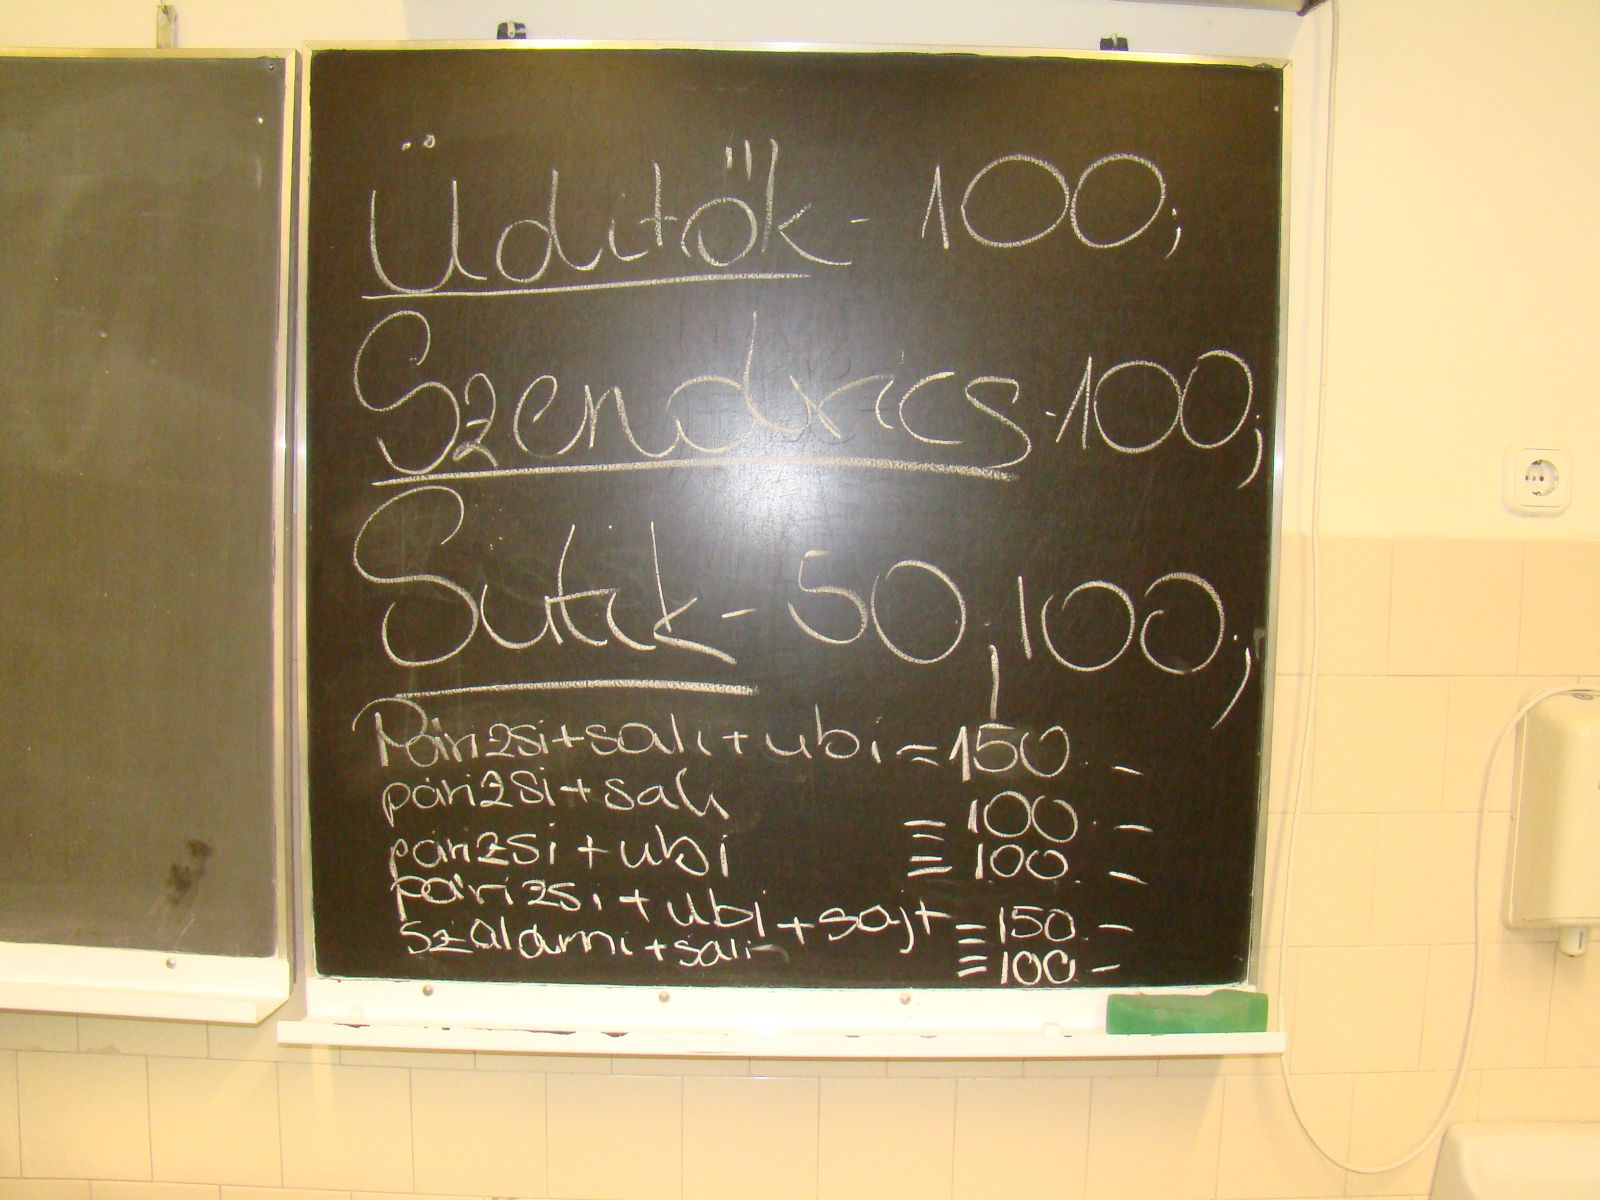 Üdítők - 100,
Szendvics - 100,
Sütik - 50, 100,
Párizsi + sali + ubi = 150.-
párizsi + sali = 100.-
párizsi + ubi = 100.-
párizsi + ubi + sajt = 150.-
szalámi + sali = 100 -